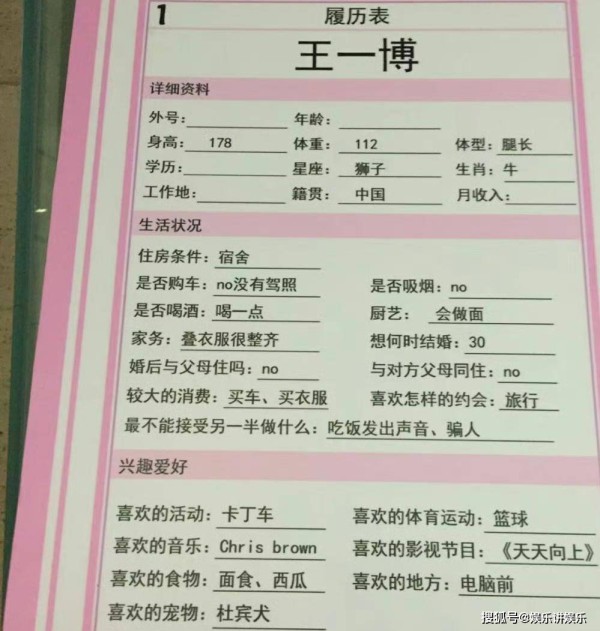 1 履历表
王一博
详细资料
外号： 年龄：
身高： 178 体重： 112 体型：腿长
学历： 星座： 狮子 生肖：牛
工作地： 籍贯： 中国 月收入：
生活状况
住房条件：宿舍
是否购车：no没有驾照 是否吸烟：no
是否喝酒：喝一点 厨艺： 会做面
家务：叠衣服很整齐 想何时结婚：30
婚后与父母住吗：no 与对方父母同住：no
较大的消费：买车、买衣服 喜欢怎样的约会：旅行
最不能接受另一半做什么：吃饭发出声音、骗人
兴趣爱好
喜欢的活动：卡丁车 喜欢的体育运动：篮球
喜欢的音乐：Chris brown 喜欢的影视节目：《天天向上》
喜欢的食物：面食、西瓜 喜欢的地方：电脑前
喜欢的宠物：杜宾犬
搜狐号@娱乐讲娱乐